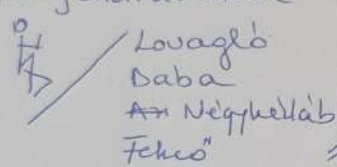 Lovagló
Baba
Négykézláb
Fekvő